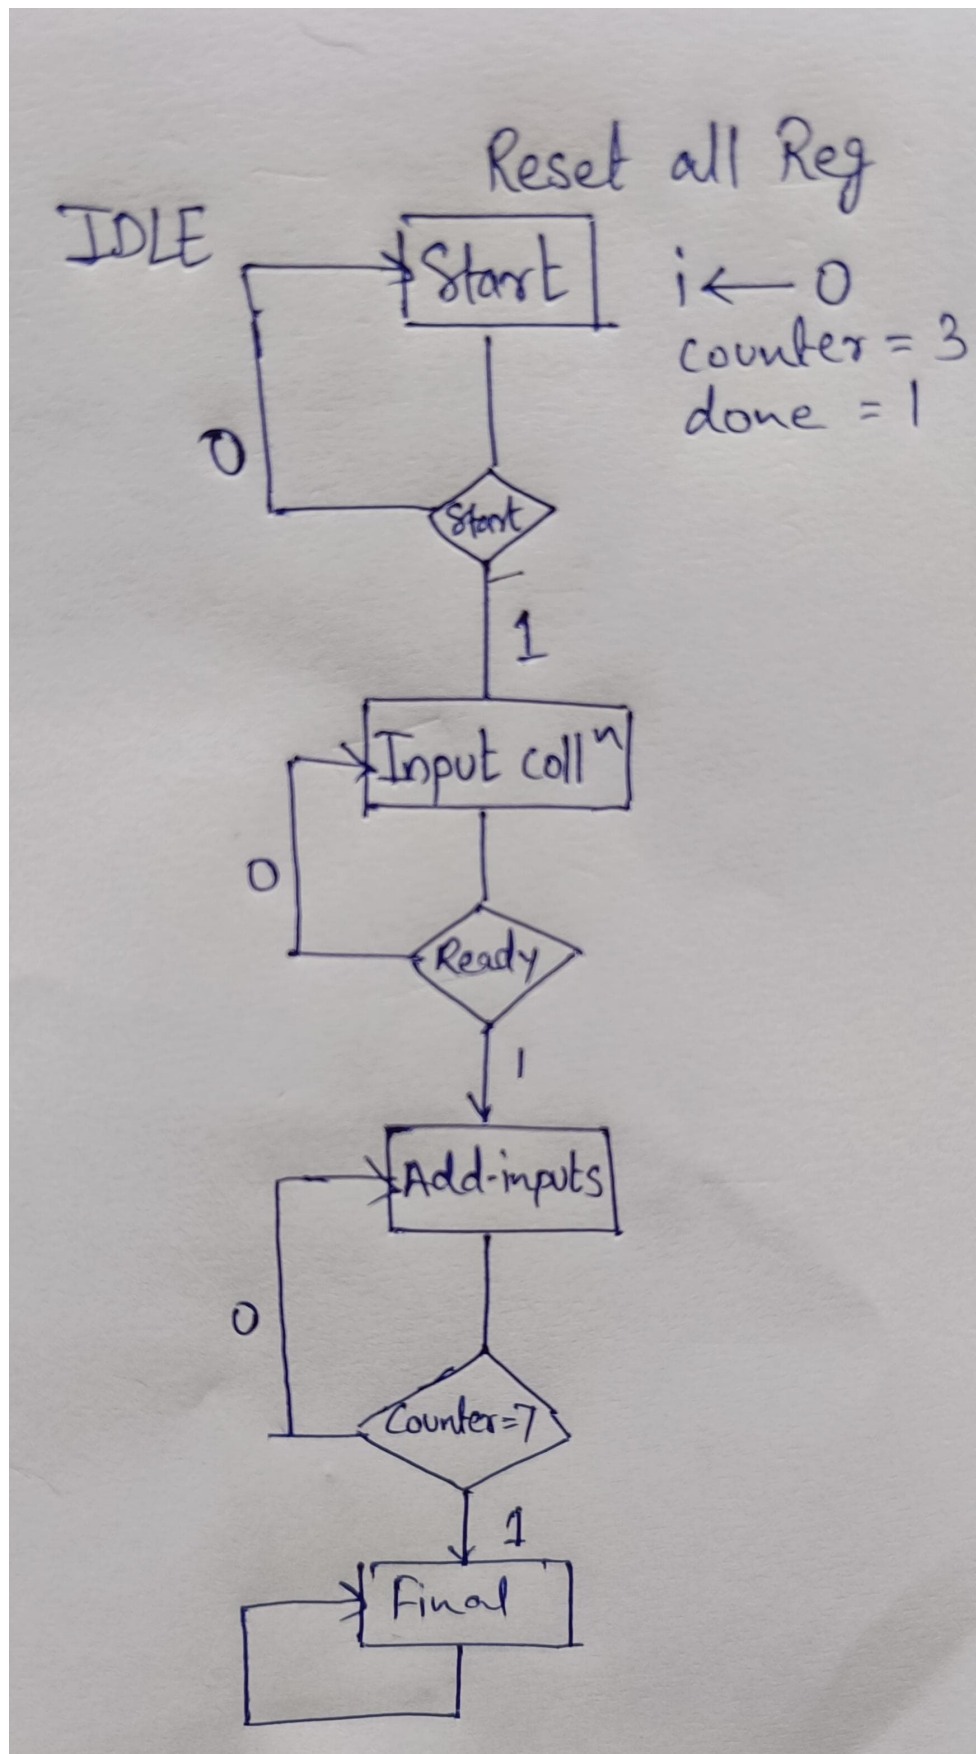 Reset all Reg
IDLE
Start
i ← 0
counter = 3
done = 1
0
Start
1
Input collⁿ
0
Ready
1
Add-inputs
0
Counter=7
1
Final